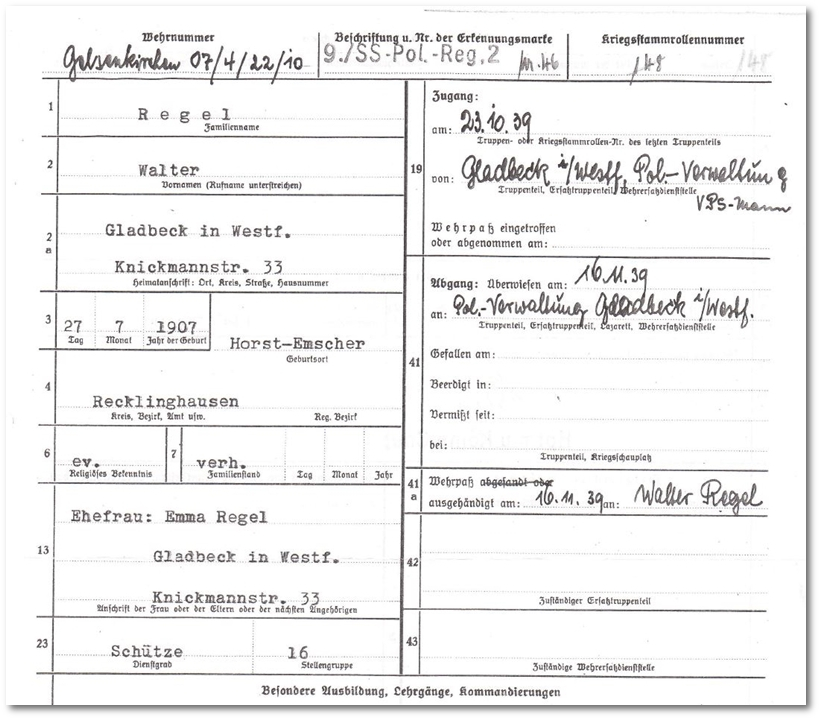 Wehrnummer
Gelsenkirchen 07/4/22/10
Beschriftung u. Nr. der Erkennungsmarke
9./SS-Pol.-Reg.2 Nr. 46
Kriegsstammrollennummer
148
1
Regel
Familienname
2
Walter
Vornamen (Rufname unterstreichen)
2
a
Gladbeck in Westf.
Knickmannstr. 33
Heimatanschrift: Ort, Kreis, Straße, Hausnummer
3
27 7 1907
Tag Monat Jahr der Geburt
Horst-Emscher
Geburtsort
4
Recklinghausen
Kreis, Bezirk, Amt usw. Reg. Bezirk
6
ev.
Religiöses Bekenntnis
7
verh.
Familienstand Tag Monat Jahr
13
Ehefrau: Emma Regel
Gladbeck in Westf.
Knickmannstr. 33
Anschrift der Frau oder der Eltern oder der nächsten Angehörigen
23
Schütze 16
Dienstgrad Stellengruppe
19
Zugang:
am: 23.10.39
Truppen- oder Kriegsstammrollen-Nr. des letzten Truppenteils
von: Gladbeck i/Westf. Pol.-Verwaltung
Truppenteil, Ersatztruppenteil, Wehrersatzdienststelle
VPS-Mann
Wehrpaß eingetroffen
oder abgenommen am:
41
Abgang: Überwiesen am: 16.11.39
an: Pol.-Verwaltung Gladbeck i/Westf.
Truppenteil, Ersatztruppenteil, Lazarett, Wehrersatzdienststelle
Gefallen am:
Beerdigt in:
Vermißt seit:
bei:
Truppenteil, Kriegsschauplatz
41
a
Wehrpaß abgesandt oder
ausgehändigt am: 16.11.39 an: Walter Regel
42
Zuständiger Ersatztruppenteil
43
Zuständige Wehrersatzdienststelle
Besondere Ausbildung, Lehrgänge, Kommandierungen